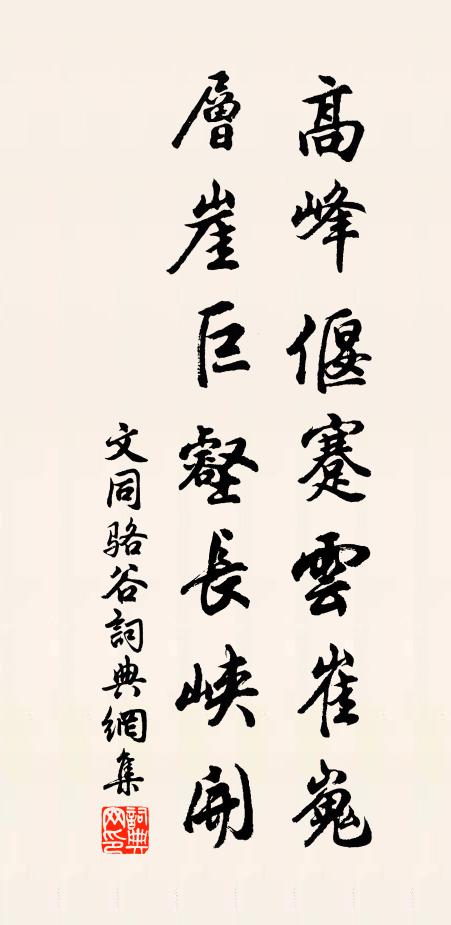 高峰偃蹇雲崔嵬
層崖巨壑長峽開
文同駱谷詞典網集
詞典网印